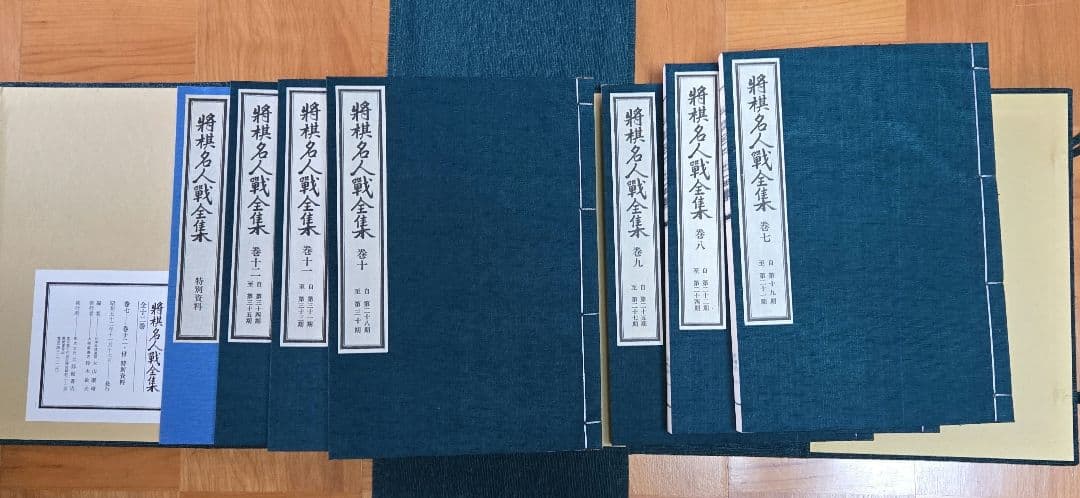 將棋名人戰全集
卷七
自 第十九期
至 第二十一期
將棋名人戰全集
卷八
自 第二十二期
至 第二十四期
將棋名人戰全集
卷九
自 第二十五期
至 第二十七期
將棋名人戰全集
卷十
自 第二十八期
至 第三十期
將棋名人戰全集
卷十一
自 第三十一期
至 第三十三期
將棋名人戰全集
卷十二
自 第三十四期
至 第三十五期
將棋名人戰全集
特別資料
將棋名人戰全集
全十二卷
卷七—卷十二・付 特別資料